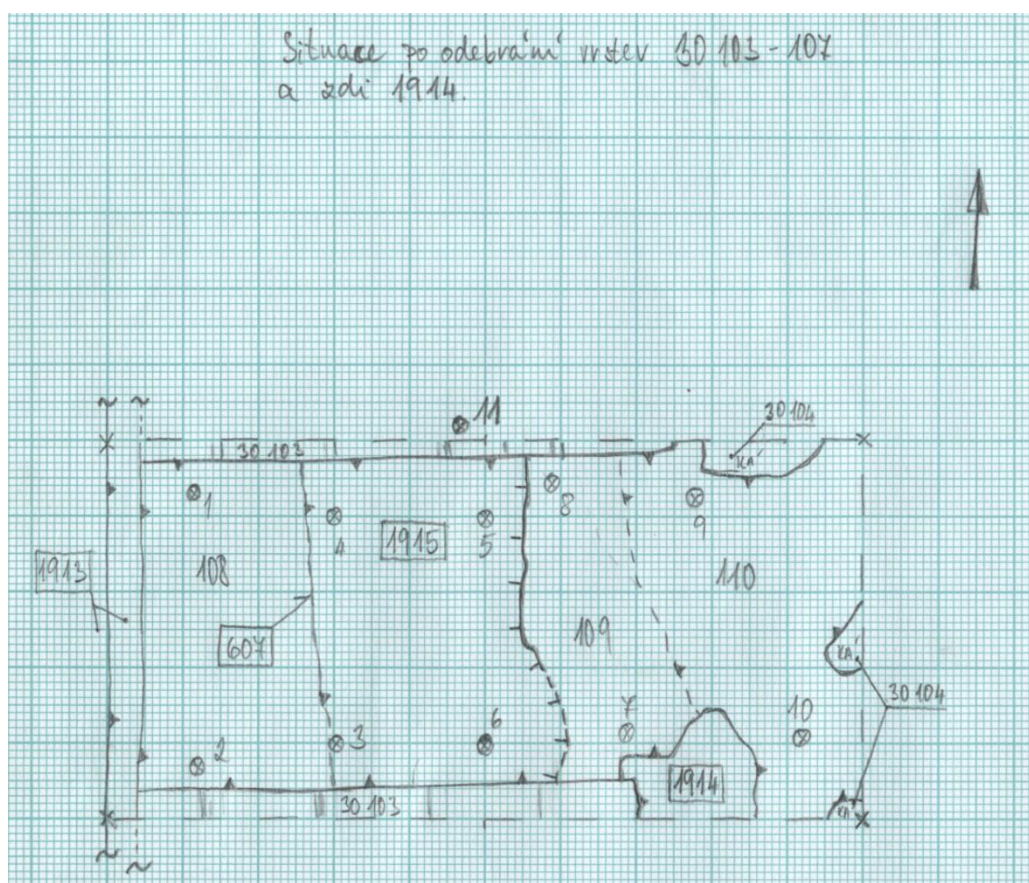 Situace po odebrání vrstev 30 103 - 107
a zdi 1914.
30 104
11
30 103
KÁ
1
4
1915
5
8
9
1913
108
110
607
109
KÁ
30 104
2
3
6
7
10
1914
30 103
KÁ